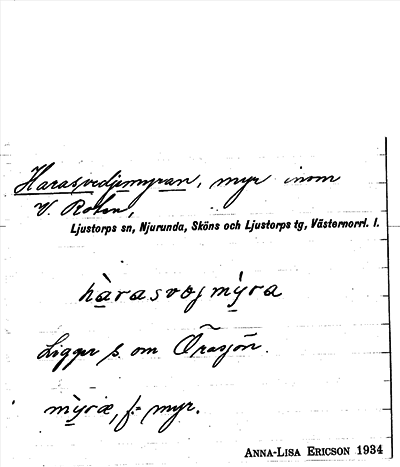 Harasvedjemyran, myr inom
V. Roten,
Ljustorps sn, Njurunda, Sköns och Ljustorps tg, Västernorrl. l.
hàrasvoj mỳra
Ligger s. om Örasjön.
mỳræ, f. = myr.
ANNA-LISA ERICSON 1934